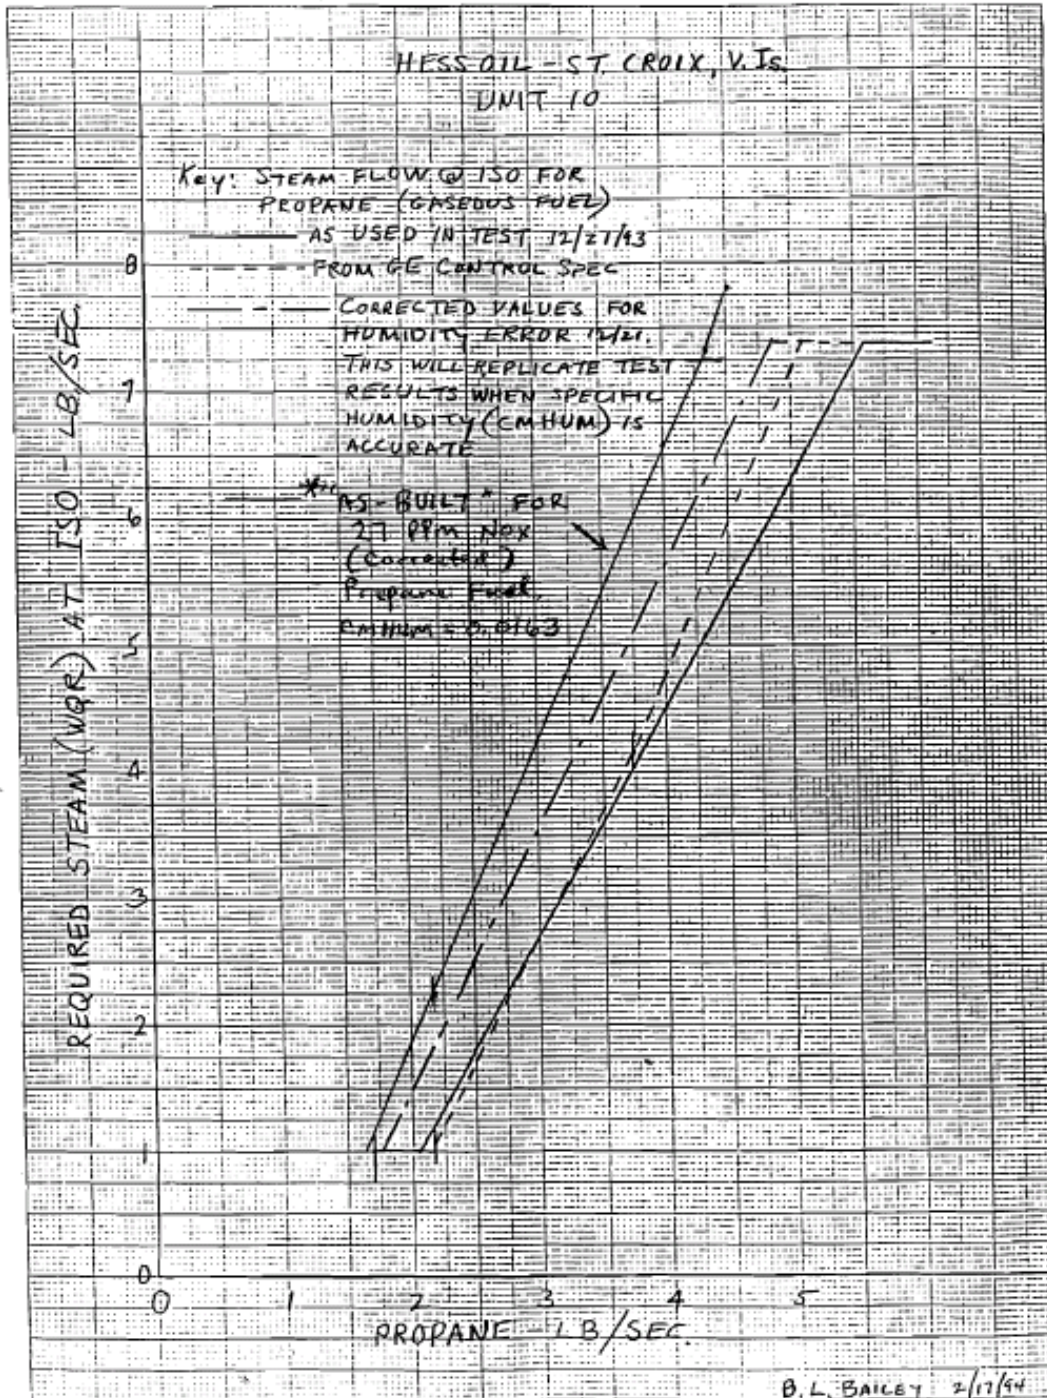 HESS OIL - ST. CROIX, V. Is.
UNIT 10
Key: STEAM FLOW @ ISO FOR
PROPANE (GASEOUS FUEL)
AS USED IN TEST 12/21/93
FROM GE CONTROL SPEC
CORRECTED VALUES FOR
HUMIDITY ERROR 12/21.
THIS WILL REPLICATE TEST
RESULTS WHEN SPECIFIC
HUMIDITY (CMHUM) IS
ACCURATE
*"AS-BUILT" FOR
27 PPM NOx
(Corrected)
Propane Fuel.
CMHUM = 0.0163
REQUIRED STEAM (WQR) AT ISO - LB/SEC.
8
7
6
5
4
3
2
1
0
0 1 2 3 4 5
PROPANE - LB/SEC.
B. L. BAILEY 2/17/94